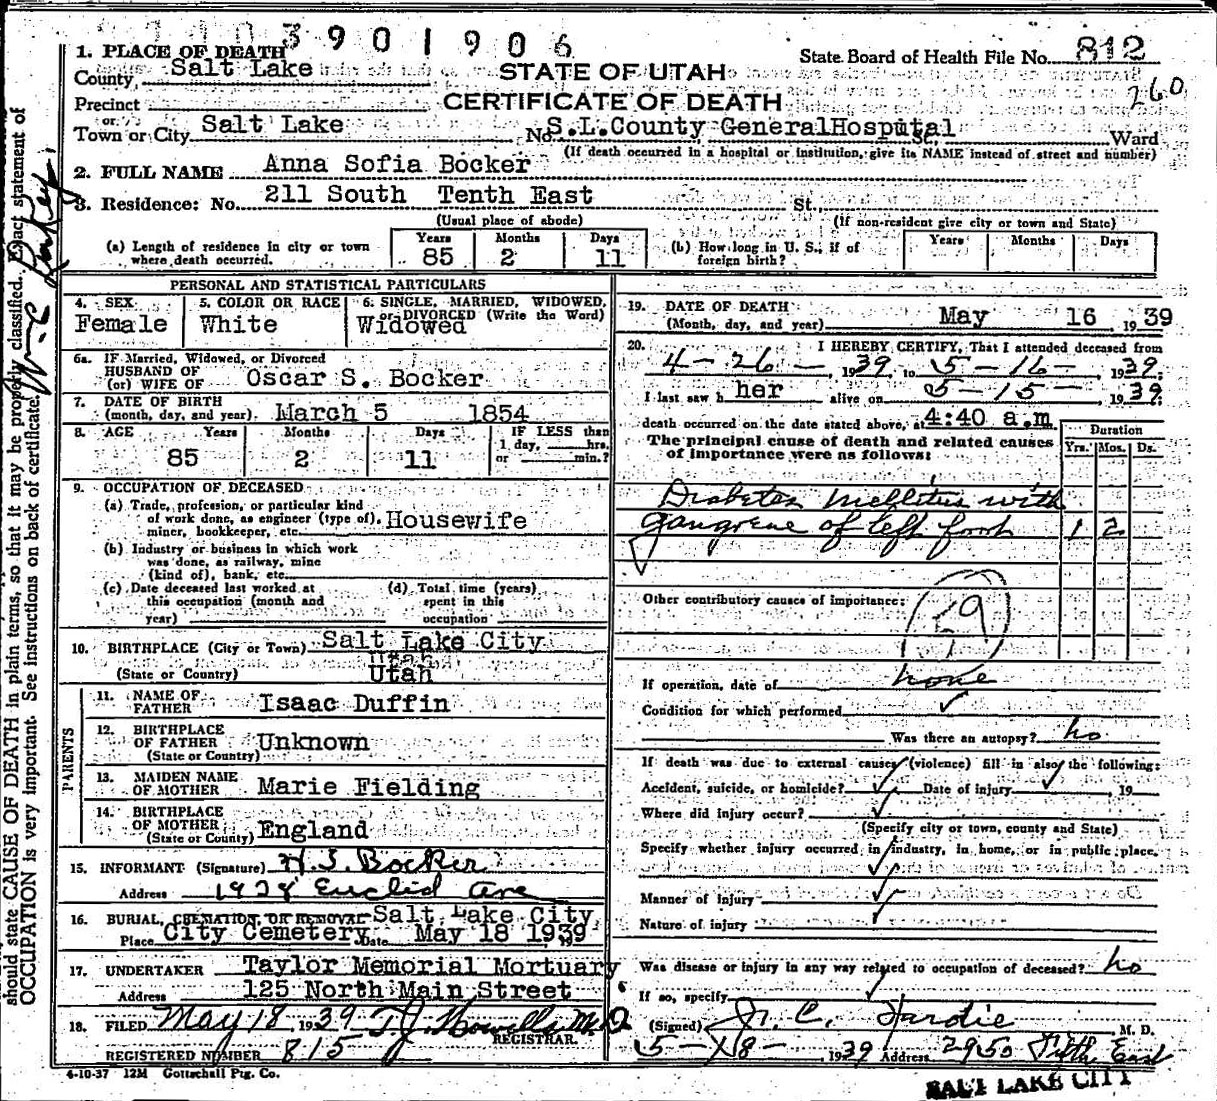 3901906
1. PLACE OF DEATH
State Board of Health File No. 812
County Salt Lake
STATE OF UTAH
260
Precinct
CERTIFICATE OF DEATH
or
Town or City Salt Lake No. S.L.County GeneralHosputal St., Ward
(If death occurred in a hospital or institution, give its NAME instead of street and number)
2. FULL NAME Anna Sofia Bocker
3. Residence: No. 211 South Tenth East St.
(Usual place of abode) (If non-resident give city or town and State)
(a) Length of residence in city or town where death occurred. Years 85 Months 2 Days 11
(b) How long in U. S., if of foreign birth? Years Months Days
PERSONAL AND STATISTICAL PARTICULARS
4. SEX Female
5. COLOR OR RACE White
6. SINGLE, MARRIED, WIDOWED, or DIVORCED (Write the Word) Widowed
6a. IF Married, Widowed, or Divorced
HUSBAND OF
(or) WIFE OF Oscar S. Bocker
7. DATE OF BIRTH
(month, day, and year). March 5 1854
8. AGE Years 85 Months 2 Days 11 IF LESS than 1 day, hrs. or min.?
9. OCCUPATION OF DECEASED
(a) Trade, profession, or particular kind
of work done, as engineer (type of), Housewife
miner, bookkeeper, etc.
(b) Industry or business in which work
was done, as railway, mine
(kind of), bank, etc.
(c) Date deceased last worked at this occupation (month and year)
(d) Total time (years) spent in this occupation
10. BIRTHPLACE (City or Town) Salt Lake City
Utah
(State or Country) Utah
PARENTS
11. NAME OF FATHER Isaac Duffin
12. BIRTHPLACE OF FATHER Unknown
(State or Country)
13. MAIDEN NAME OF MOTHER Marie Fielding
14. BIRTHPLACE OF MOTHER England
(State or Country)
15. INFORMANT (Signature) H.S. Bocker
Address 1928 Euclid Ave
16. BURIAL, CREMATION, OR REMOVAL Salt Lake City
Place City Cemetery Date May 18 1939
17. UNDERTAKER Taylor Memorial Mortuary
Address 125 North Main Street
18. FILED May 18, 1939 T.J. Howells M.D.
REGISTRAR.
REGISTERED NUMBER 815
4-10-37 12M Gottschall Ptg. Co.
19. DATE OF DEATH
(Month, day, and year) May 16 1939
20. I HEREBY CERTIFY, That I attended deceased from
4-26-, 1939, to 5-16-, 1939.
I last saw her alive on 5-15-, 1939.
death occurred on the date stated above, at 4:40 a.m.
The principal cause of death and related causes
of importance were as follows:
Duration
Yrs. Mos. Ds.
Diabetes mellitus with
gangrene of left foot 1 2
Other contributory causes of importance:
59
If operation, date of none
Condition for which performed
Was there an autopsy? no
If death was due to external causes (violence) fill in also the following:
Accident, suicide, or homicide? Date of injury 19
Where did injury occur?
(Specify city or town, county and State)
Specify whether injury occurred in industry, in home, or in public place.
Manner of injury
Nature of injury
Was disease or injury in any way related to occupation of deceased? no
If so, specify
(Signed) Jr. C. Hardie, M. D.
5-18-, 1939 Address 2950 Fifth East
SALT LAKE CITY
should state CAUSE OF DEATH in plain terms, so that it may be properly classified. Exact statement of
OCCUPATION is very important. See instructions on back of certificate.